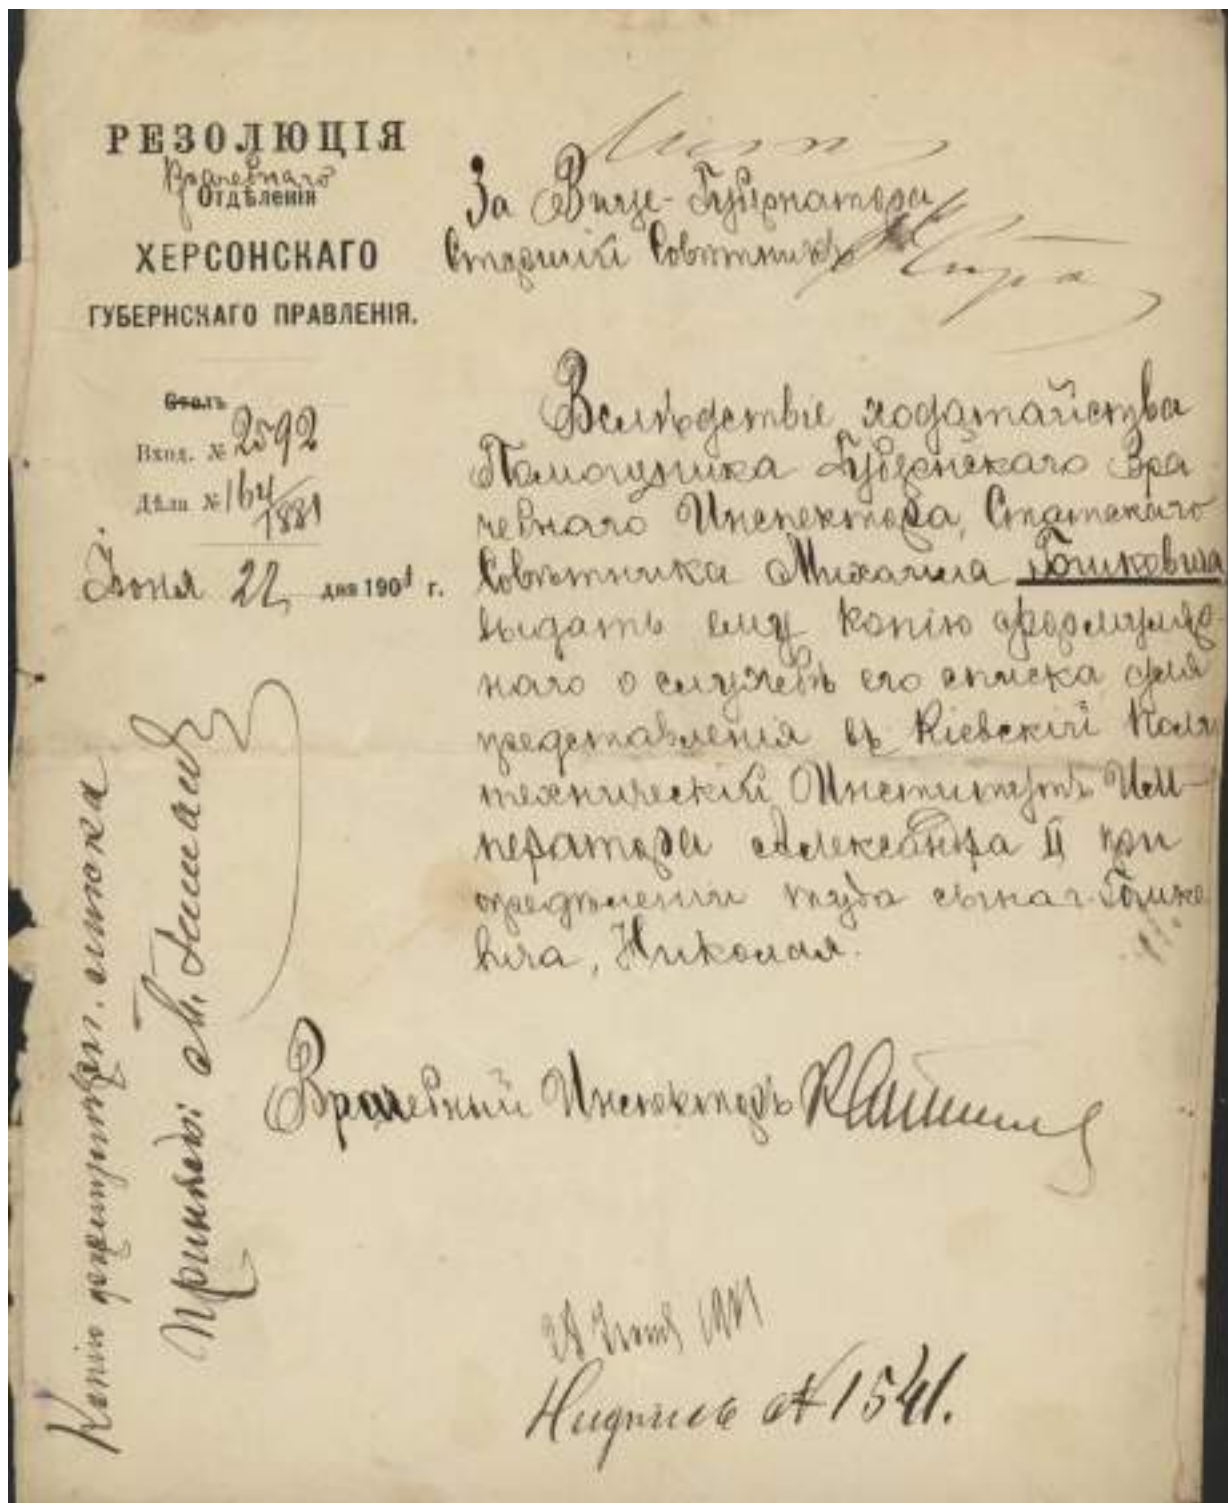 РЕЗОЛЮЦІЯ
Врачебнаго
Отдѣленія
ХЕРСОНСКАГО
ГУБЕРНСКАГО ПРАВЛЕНІЯ.
За Вице-Губернатора
Старшій Совѣтникъ
Столъ
Вход. № 2592
Дѣла № 164/1881
Іюня 22 дня 1901 г.
Вслѣдствіе ходатайства
Помощника Губернскаго Вра
чебнаго Инспектора, Статскаго
Совѣтника Михаила Гошкевича
выдать ему копію формуляр
наго о службѣ его списка для
представленія въ Кіевскій Поли
техническій Институтъ Им-
ператора Александра II при
опредѣленіи туда сына г. Гошке
вича, Николая.
Врачебный Инспекторъ
Копію формулярн. списка
Принялъ М.
28 Іюня 1901
Надпись № 1541.